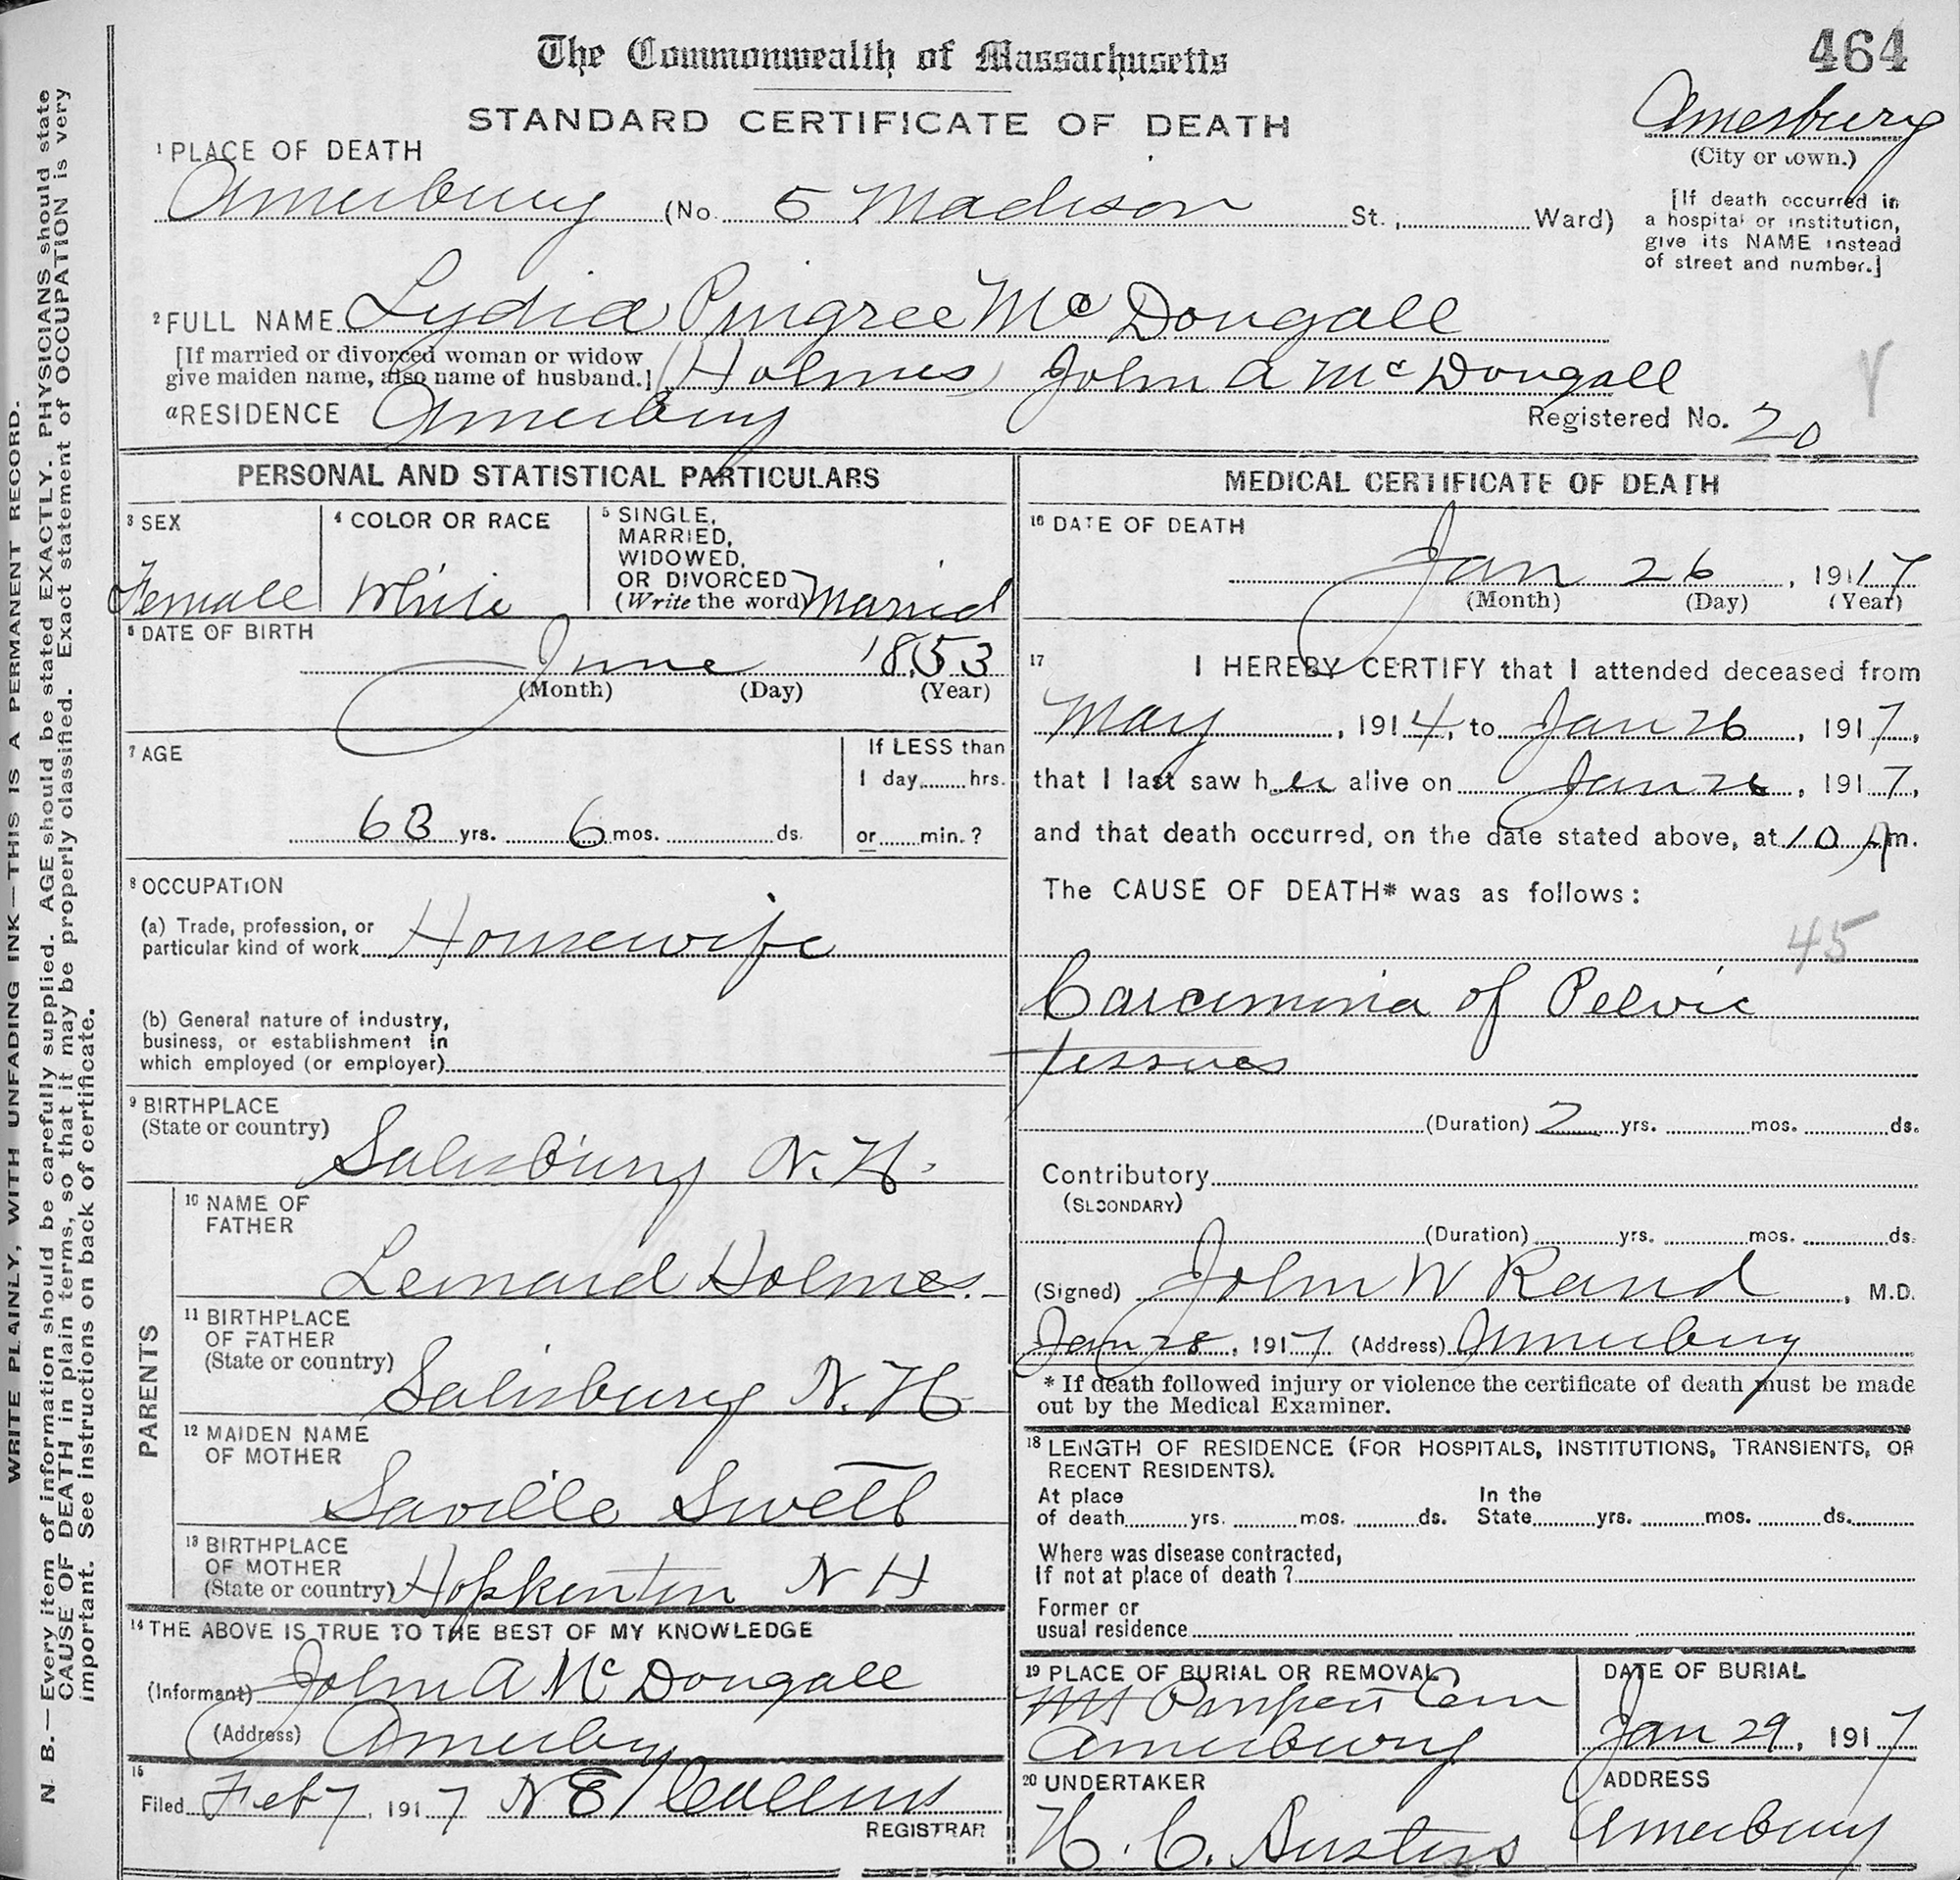 The Commonwealth of Massachusetts
464
STANDARD CERTIFICATE OF DEATH
Amesbury
(City or town.)
1 PLACE OF DEATH
Amesbury (No. 5 Madison St., Ward)
[If death occurred in
a hospital or institution,
give its NAME instead
of street and number.]
2 FULL NAME Lydia Pingree McDougall
[If married or divorced woman or widow
give maiden name, also name of husband.] (Holmes) John A McDougall
a RESIDENCE Amesbury
Registered No. 20
PERSONAL AND STATISTICAL PARTICULARS
3 SEX
Female
4 COLOR OR RACE
White
5 SINGLE,
MARRIED,
WIDOWED,
OR DIVORCED
(Write the word) Married
6 DATE OF BIRTH
June 1853
(Month) (Day) (Year)
7 AGE
63 yrs. 6 mos. ds.
If LESS than
1 day hrs.
or min.?
8 OCCUPATION
(a) Trade, profession, or
particular kind of work Homewife
(b) General nature of industry,
business, or establishment in
which employed (or employer)
9 BIRTHPLACE
(State or country)
Salisbury N.H.
PARENTS
10 NAME OF
FATHER
Leonard Holmes.
11 BIRTHPLACE
OF FATHER
(State or country)
Salisbury N.H.
12 MAIDEN NAME
OF MOTHER
Saville Swett
13 BIRTHPLACE
OF MOTHER
(State or country) Hopkinton N H
14 THE ABOVE IS TRUE TO THE BEST OF MY KNOWLEDGE
(Informant) John A McDougall
(Address) Amesby
15
Filed Feb 7, 1917 N E Collins
REGISTRAR
MEDICAL CERTIFICATE OF DEATH
16 DATE OF DEATH
Jan 26, 1917
(Month) (Day) (Year)
17 I HEREBY CERTIFY that I attended deceased from
May, 1914, to Jan 26, 1917,
that I last saw her alive on Jan 26, 1917,
and that death occurred, on the date stated above, at 10 Am.
The CAUSE OF DEATH* was as follows:
45
Carcinmia of Pelvic
tissues
(Duration) 2 yrs. mos. ds.
Contributory
(SECONDARY)
(Duration) yrs. mos. ds.
(Signed) John W Rand, M.D.
Jan 28, 1917 (Address) Amesbury
* If death followed injury or violence the certificate of death must be made
out by the Medical Examiner.
18 LENGTH OF RESIDENCE (FOR HOSPITALS, INSTITUTIONS, TRANSIENTS, OR
RECENT RESIDENTS).
At place
of death yrs. mos. ds.
In the
State yrs. mos. ds.
Where was disease contracted,
If not at place of death?
Former or
usual residence
19 PLACE OF BURIAL OR REMOVAL
Mt Prospect Cem
Amesbury
DATE OF BURIAL
Jan 29, 1917
20 UNDERTAKER
H. C. Austin
ADDRESS
Amesbury
WRITE PLAINLY, WITH UNFADING INK—THIS IS A PERMANENT RECORD.
N. B.—Every item of information should be carefully supplied. AGE should be stated EXACTLY. PHYSICIANS should state
CAUSE OF DEATH in plain terms, so that it may be properly classified. Exact statement of OCCUPATION is very
important. See instructions on back of certificate.